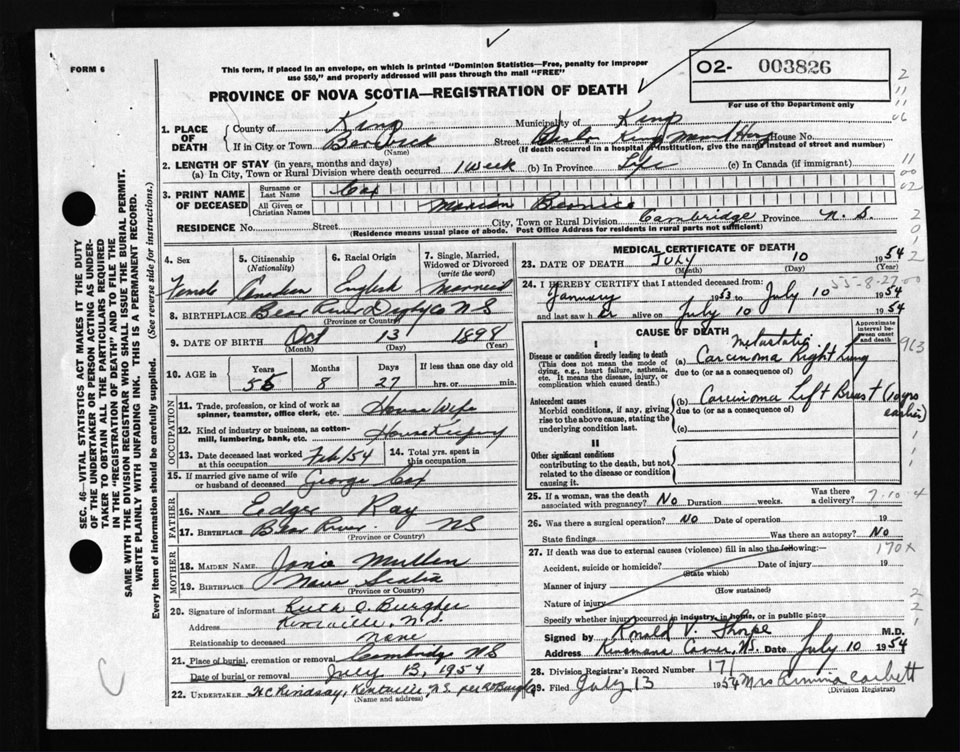 FORM 6
This form, if placed in an envelope, on which is printed "Dominion Statistics—Free, penalty for improper
use $50," and properly addressed will pass through the mail "FREE"
O2- 003826
For use of the Department only
PROVINCE OF NOVA SCOTIA—REGISTRATION OF DEATH
1. PLACE OF DEATH
County of Kings Municipality of Kings
If in City or Town Berwick Street House No.
(Name) (If death occurred in a hospital or institution, give the name instead of street and number)
2. LENGTH OF STAY (in years, months and days)
(a) In City, Town or Rural Division where death occurred 1 week (b) In Province Life (c) In Canada (if immigrant)
3. PRINT NAME OF DECEASED
Surname or Last Name Cox
All Given or Christian Names Marion Bernice
RESIDENCE No. Street City, Town or Rural Division Cambridge Province N. S.
(Residence means usual place of abode. Post Office Address for residents in rural parts not sufficient)
4. Sex Female
5. Citizenship (Nationality) Canadian
6. Racial Origin English
7. Single, Married, Widowed or Divorced (write the word) Married
8. BIRTHPLACE Bear River Digby Co NS
(Province or Country)
9. DATE OF BIRTH Oct 13 1898
(Month) (Day) (Year)
10. AGE Years 55 Months 8 Days 27 If less than one day old hrs. or min.
OCCUPATION
11. Trade, profession, or kind of work as spinner, teamster, office clerk, etc. House Wife
12. Kind of industry or business, as cotton-mill, lumbering, bank, etc. House Keeping
13. Date deceased last worked at this occupation Feb/54
14. Total yrs. spent in this occupation
15. If married give name of wife or husband of deceased George Cox
FATHER
16. NAME Edger Ray
17. BIRTHPLACE Bear River. NS
(Province or Country)
MOTHER
18. MAIDEN NAME Mullen
19. BIRTHPLACE Nova Scotia
(Province or Country)
20. Signature of informant Ruth O. Burgher
Address Kentville, N.S.
Relationship to deceased None
21. Place of burial, cremation or removal Cambridge NS
Date of burial or removal July 13, 1954
22. UNDERTAKER Kentville, N.S.
(Name and address)
MEDICAL CERTIFICATE OF DEATH
23. DATE OF DEATH JULY 10 1954
(Month) (Day) (Year)
24. I HEREBY CERTIFY that I attended deceased from:
January 1953 to July 10 1954
and last saw h er alive on July 10 1954
55-8-27
CAUSE OF DEATH
Approximate interval between onset and death
I
Disease or condition directly leading to death
(This does not mean the mode of dying, e.g., heart failure, asthenia, etc. It means the disease, injury, or complication which caused death.)
(a) Metastatic Carcinoma Right Lung
due to (or as a consequence of)
Antecedent causes
Morbid conditions, if any, giving rise to the above cause, stating the underlying condition last.
(b) Carcinoma Left Breast (10 yrs earlier)
due to (or as a consequence of)
(c)
II
Other significant conditions
contributing to the death, but not related to the disease or condition causing it
25. If a woman, was the death associated with pregnancy? No Duration weeks. Was there a delivery?
7.10 4
26. Was there a surgical operation? No Date of operation 19
State findings Was there an autopsy? No
27. If death was due to external causes (violence) fill in also the following:
170x
Accident, suicide or homicide? Date of injury 19
(State which)
Manner of injury
(How sustained)
Nature of injury
Specify whether injury occurred in industry, in home, or in public place
Signed by Ronald V. Thorpe M.D.
Address Kinsmans Corner, NS. Date July 10 1954
28. Division Registrar's Record Number 171
29. Filed July 13 1954 Mrs Corbett
(Division Registrar)
SEC. 46—VITAL STATISTICS ACT MAKES IT THE DUTY
OF THE UNDERTAKER OR PERSON ACTING AS UNDER-
TAKER TO OBTAIN ALL THE PARTICULARS REQUIRED
IN THE "REGISTRATION OF DEATH" AND TO FILE THE
SAME WITH THE DIVISION REGISTRAR WHO SHALL ISSUE THE BURIAL PERMIT.
WRITE PLAINLY WITH UNFADING INK. THIS IS A PERMANENT RECORD.
Every item of information should be carefully supplied. (See reverse side for instructions.)